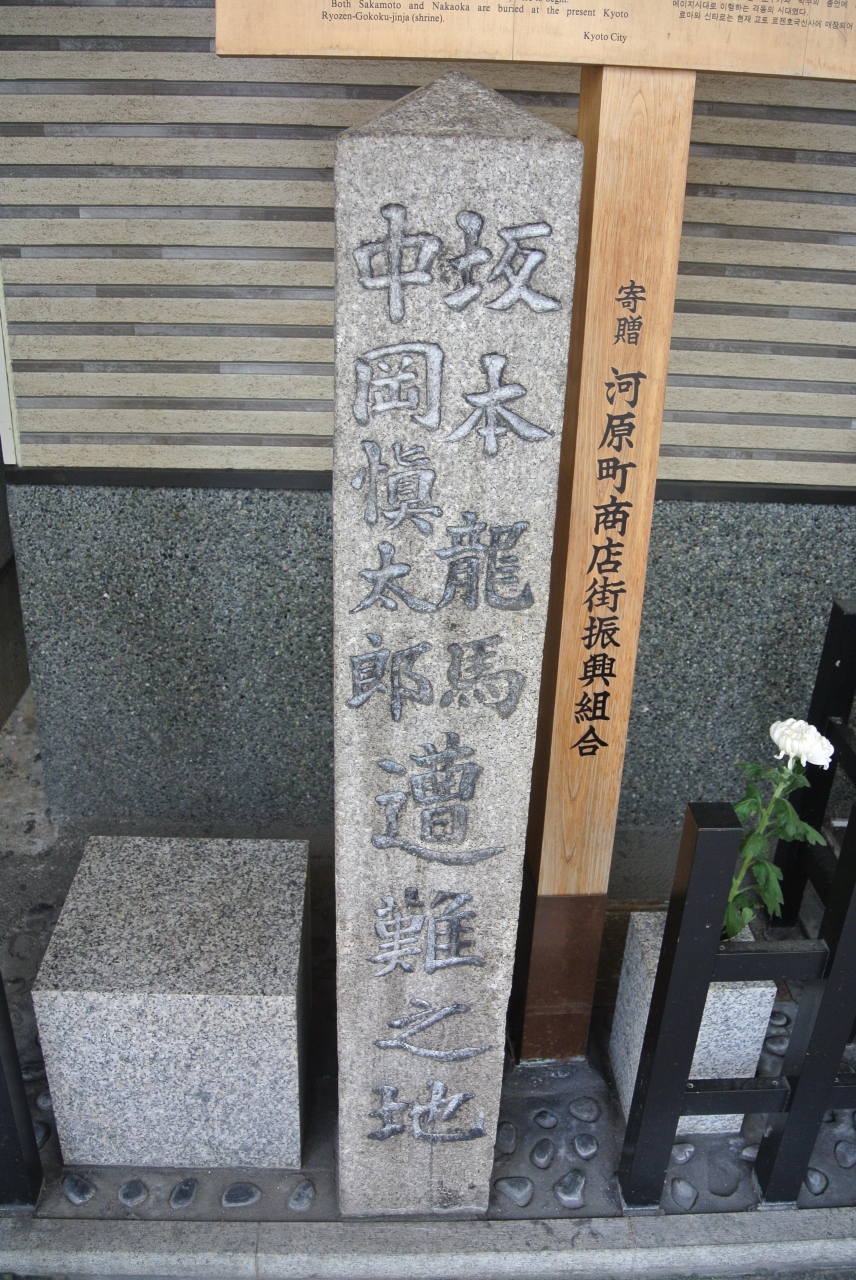 Both Sakamoto and Nakaoka are buried at the present Kyoto
Ryozen-Gokoku-jinja (shrine).
Kyoto City
메이지시대로 이행하는 격동의 시대였다.
료마와 신타로는 현재 교토 료젠호국신사에 매장되어
坂本龍馬
中岡慎太郎
遭難之地
寄贈 河原町商店街振興組合